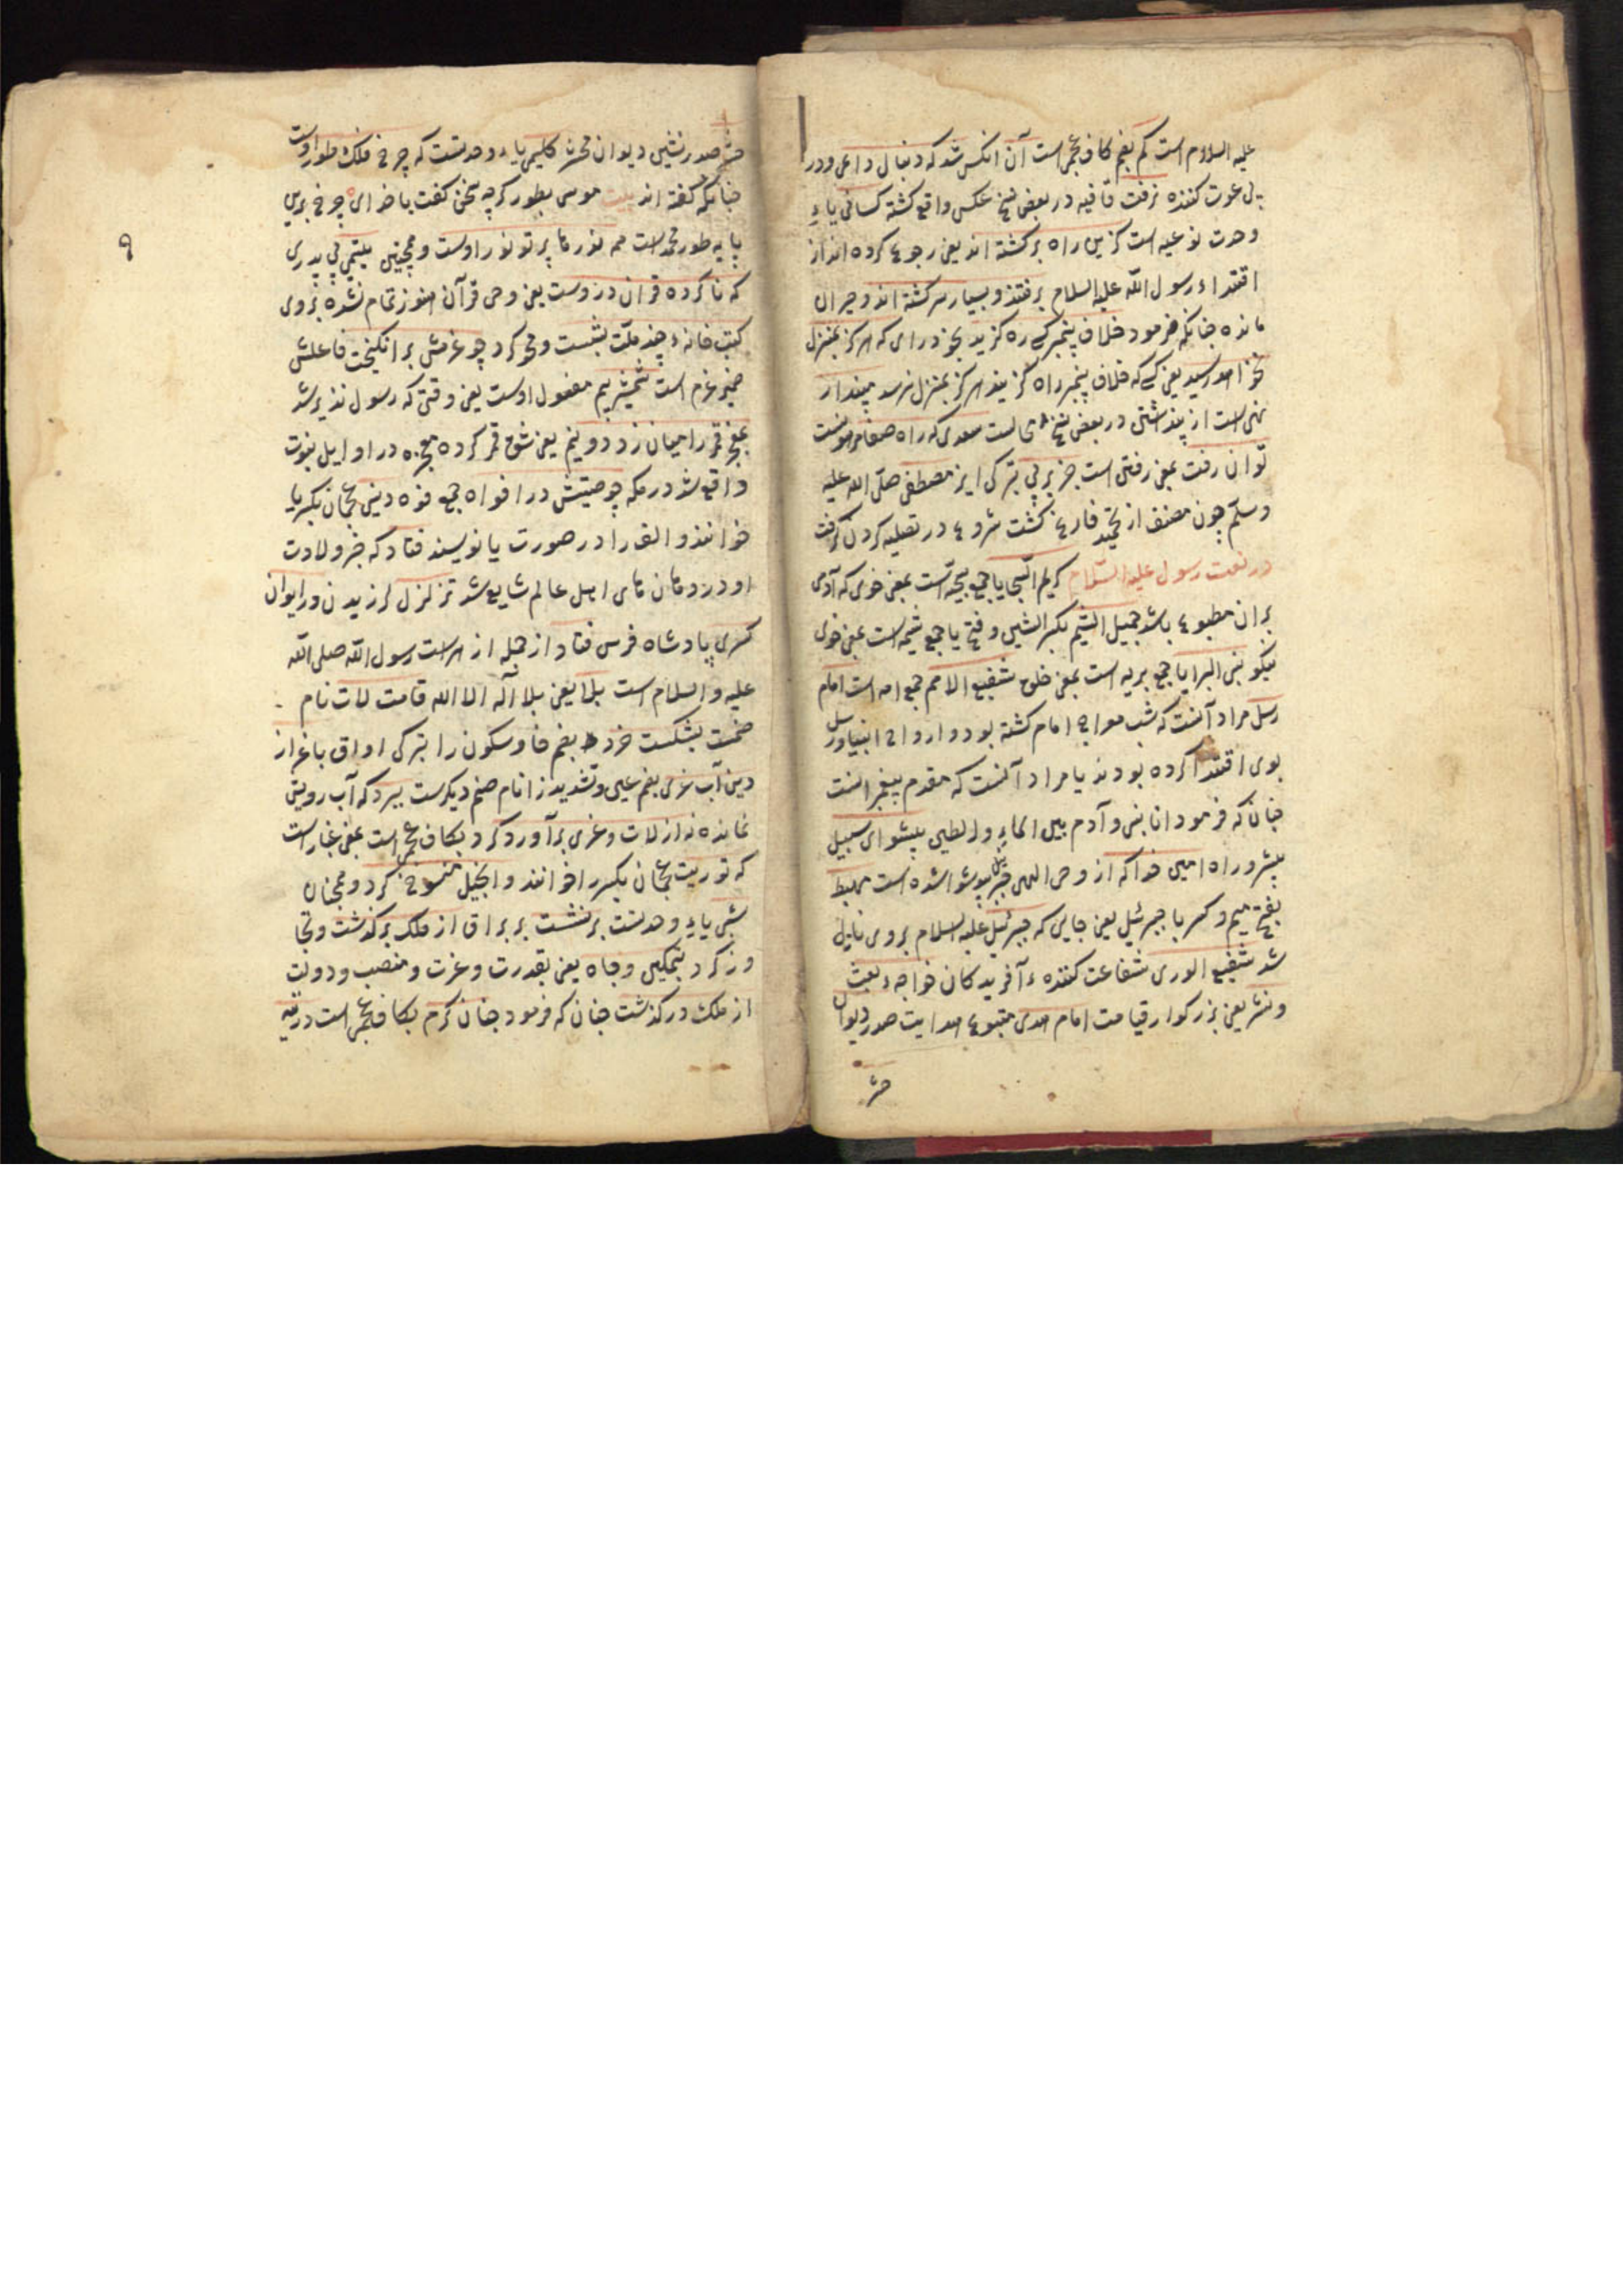 علیه السلام است کم بضم کاف عجمی است آن انکس شد که دنبال داعی ودر
پی عوت کننده نرفت قافیه در بعض نسخ عکس واقع کشته کسانی یاء
وحدت نوعیه است کزین راه برکشته اند یعنی رجوع کرده اند از
اقتداء رسول الله علیه السلام برفتند و بسیار سرکشته اند و حیران
مانده چنانکه فرمود خلاف پیمبر کسی ره کزید بجز در ای که هرکز بمنزل
نخواهد رسید یعنی کسی که خلاف پیغمبر راه کزیند هرکز بمنزل نرسد مپندار
نهی است از پنداشتن در بعض نسخ محالست سعدی که راه صفا هموست
توان رفت بمعنی رفتن است جز بر پی بترکی ایز مصطفی صلی الله علیه
وسلم چون مصنف از تحمید فارغ کشت شروع در تصلیه کردن کرفت
در نعت رسول علیه السلام کریم السجایا جمع سجیه است بمعنی خوی که آدمی
بران مطبوع باشد جمیل الشیم بکسر الشین و فتح یا جمع شیمه است بمعنی خوی
نیکو نبی البرایا جمع بریه است بمعنی خلق شفیع الامم جمع امه است امام
رسل مراد آنست که شب معراج امام کشته بود و ارواح انبیا و رسل
بوی اقتدا کرده بودند یا مراد آنست که مقدم پیغمبرانست
چنان که فرمود انا نبی و آدم بین الماء والطین پیشوای سبیل
پیشرو راه امین خدا که از وحی الهی جبریل پیشوا شده است مهبط
بفتح میم و کسر با جبرئیل یعنی جایی که جبرئیل علیه السلام بروی نازل
شد شفیع الوری شفاعت کننده ء آفریدکان خواجه ء بعث
و نشر یعنی بزرکوار قیامت امام الهدی متبوع هدایت صدر دیوان
حشر
حشر صدر نشین دیوان محشر کلیمی یاء وحدتست که چرخ فلک طور اوست
چنانکه کفته اند بیت موسی بطور کرچه سخن کفت با خدای چرخ برین
پایه طور محمد است همه نورها پرتو نور اوست و همچنین یتیمی بی پدری
که ناکرده قران درست یعنی وحی قرآن هنوز تمام نشده بروی
کتب خانه ء چند ملت بشست و محو کرد چو عزمش برانکیخت فاعلش
ضمیر عزم است شمشیر بیم مفعول اوست یعنی وقتی که رسول نذیر شد
بمعجز قمر را میان زد دو نیم یعنی شق قمر کرده معجزه در اوایل نبوت
واقع شد در مکه چو صیتش در افواه جمع فوه دینی عجمان بکسر یا
خوانند و الف را در صورت یا نویسند فتاد که خبر ولادت
او در دهان های اهل عالم شایع شد تزلزل لرزیدن در ایوان
کسری پادشاه فرس فتاد از جمله از هراست رسول الله صلی الله
علیه والسلام است بلا یعنی بلا اله الا الله قامت لات نام
صنمست بشکست خرد بضم خا و سکون را بترکی اواق باعزاز
دین آب عزی بضم عین و تشدید زا نام صنم دیکرست ببرد که آب رویش
نمانده نه از لات و عزی برآورد کرد بکاف عجمی است بمعنی غبار است
که توریت عجمان بکسر را خوانند و انجیل منسوخ کرد و همچنان
شبی یاء وحدتست برنشست بر براق از فلک برکذشت و تجا
وز کرد بتمکین وجاه یعنی بقدرت و عزت و منصب و دولت
از ملک درکذشت چنان که فرمود چنان کرم بکاف عجمی است در تیه